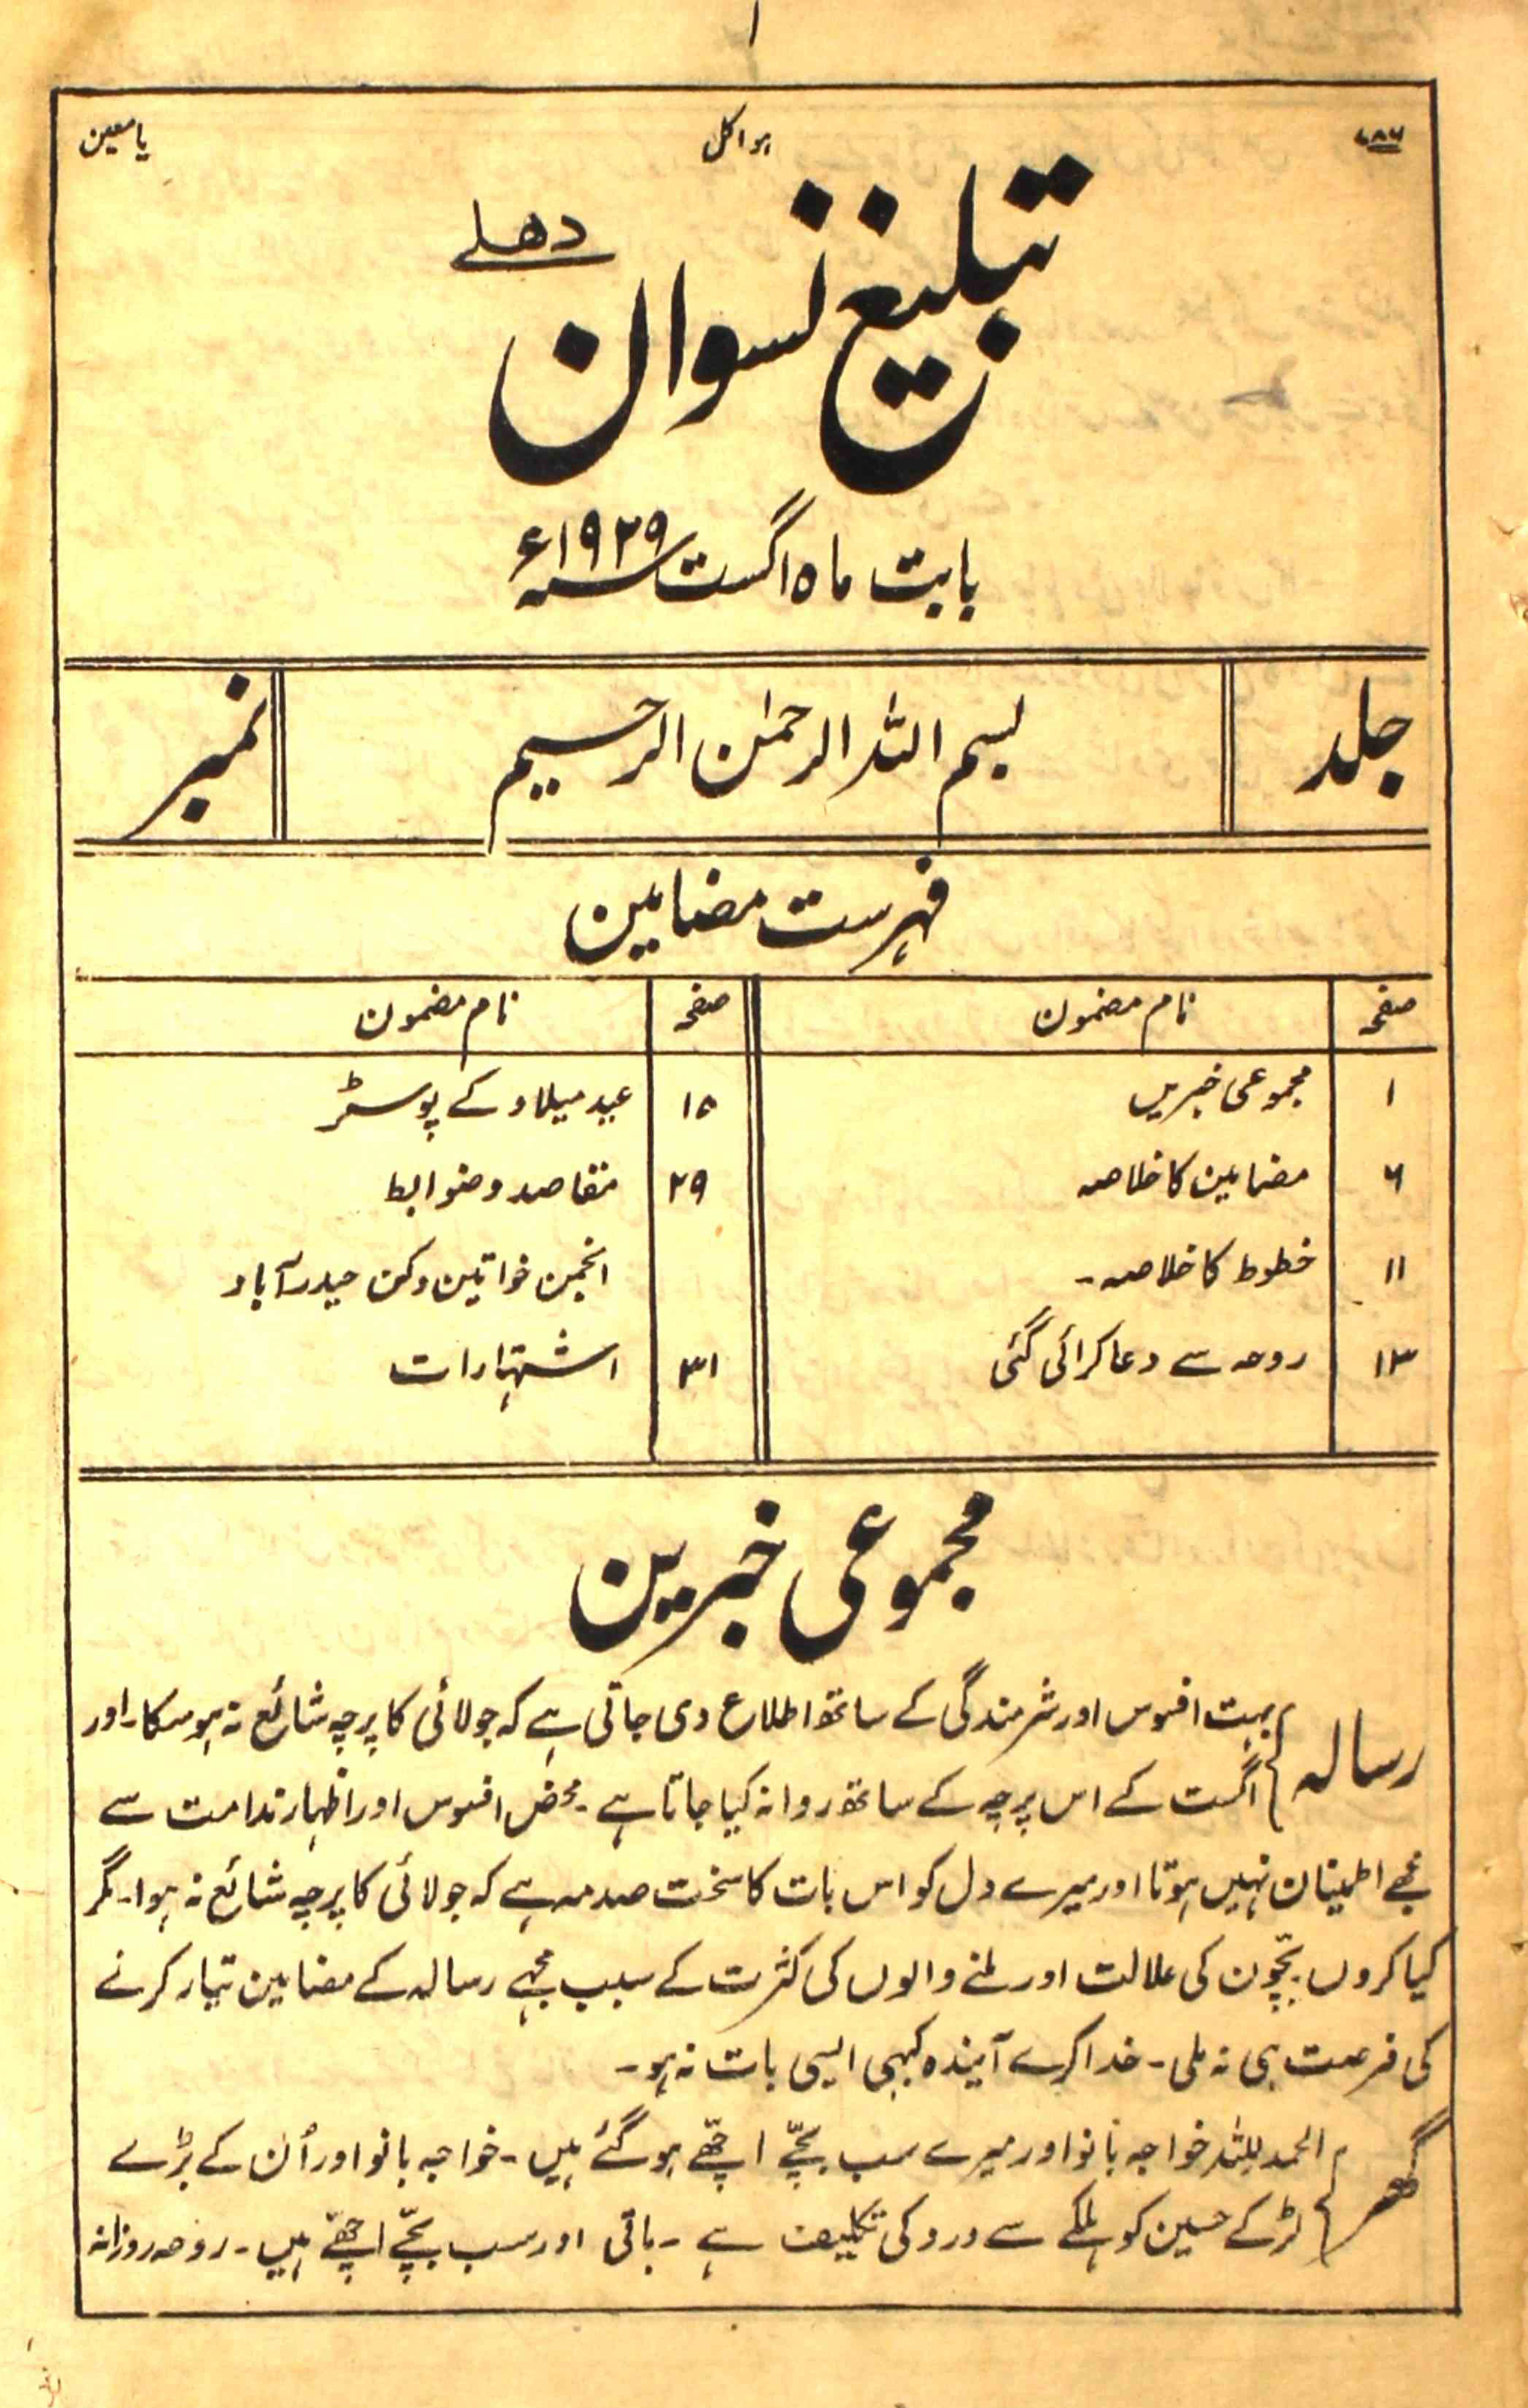 ۱
۷۸۶
ہوالکل
یا معین
تبلیغ نسوان
دھلے
بابت ماہ اگست سنہ ۱۹۲۹ء
جلد
بسم اللہ الرحمٰن الرحیم
نمبر
فہرست مضامین
صفحہ نام مضمون صفحہ نام مضمون
۱ مجموعی خبریں ۱۵ عید میلاد کے پوسٹر
۶ مضامین کا خلاصہ ۲۹ مقاصد و ضوابط
۱۱ خطوط کا خلاصہ۔ انجمن خواتین دکن حیدرآباد
۱۳ روحہ سے دعا کرائی گئی ۳۱ اشتہارات
مجموعی خبرین
رسالہ } بہت افسوس اور شرمندگی کے ساتھ اطلاع دی جاتی ہے کہ جولائی کا پرچہ شائع نہ ہو سکا۔ اور
اگست کے اس پرچہ کے ساتھ روانہ کیا جاتا ہے۔ محض افسوس اور اظہار ندامت سے
مجھے اطمینان نہیں ہوتا اور میرے دل کو اس بات کا سخت صدمہ ہے کہ جولائی کا پرچہ شائع نہ ہوا۔ مگر
کیا کروں بچّون کی علالت اور ملنے والوں کی کثرت کے سبب مجہے رسالہ کے مضامین تیار کرنے
کی فرصت ہی نہ ملی۔ خدا کرے آیندہ کبہی ایسی بات نہ ہو۔
گھر } الحمد للہ خواجہ بانو اور میرے سب بچّے اچّھے ہو گئے ہیں۔ خواجہ بانو اور اُن کے بڑے
لڑکے حسین کو ہلکے سے درد کی تکلیف ہے۔ باقی اور سب بچّے اچّھے ہیں۔ روحہ روزانہ